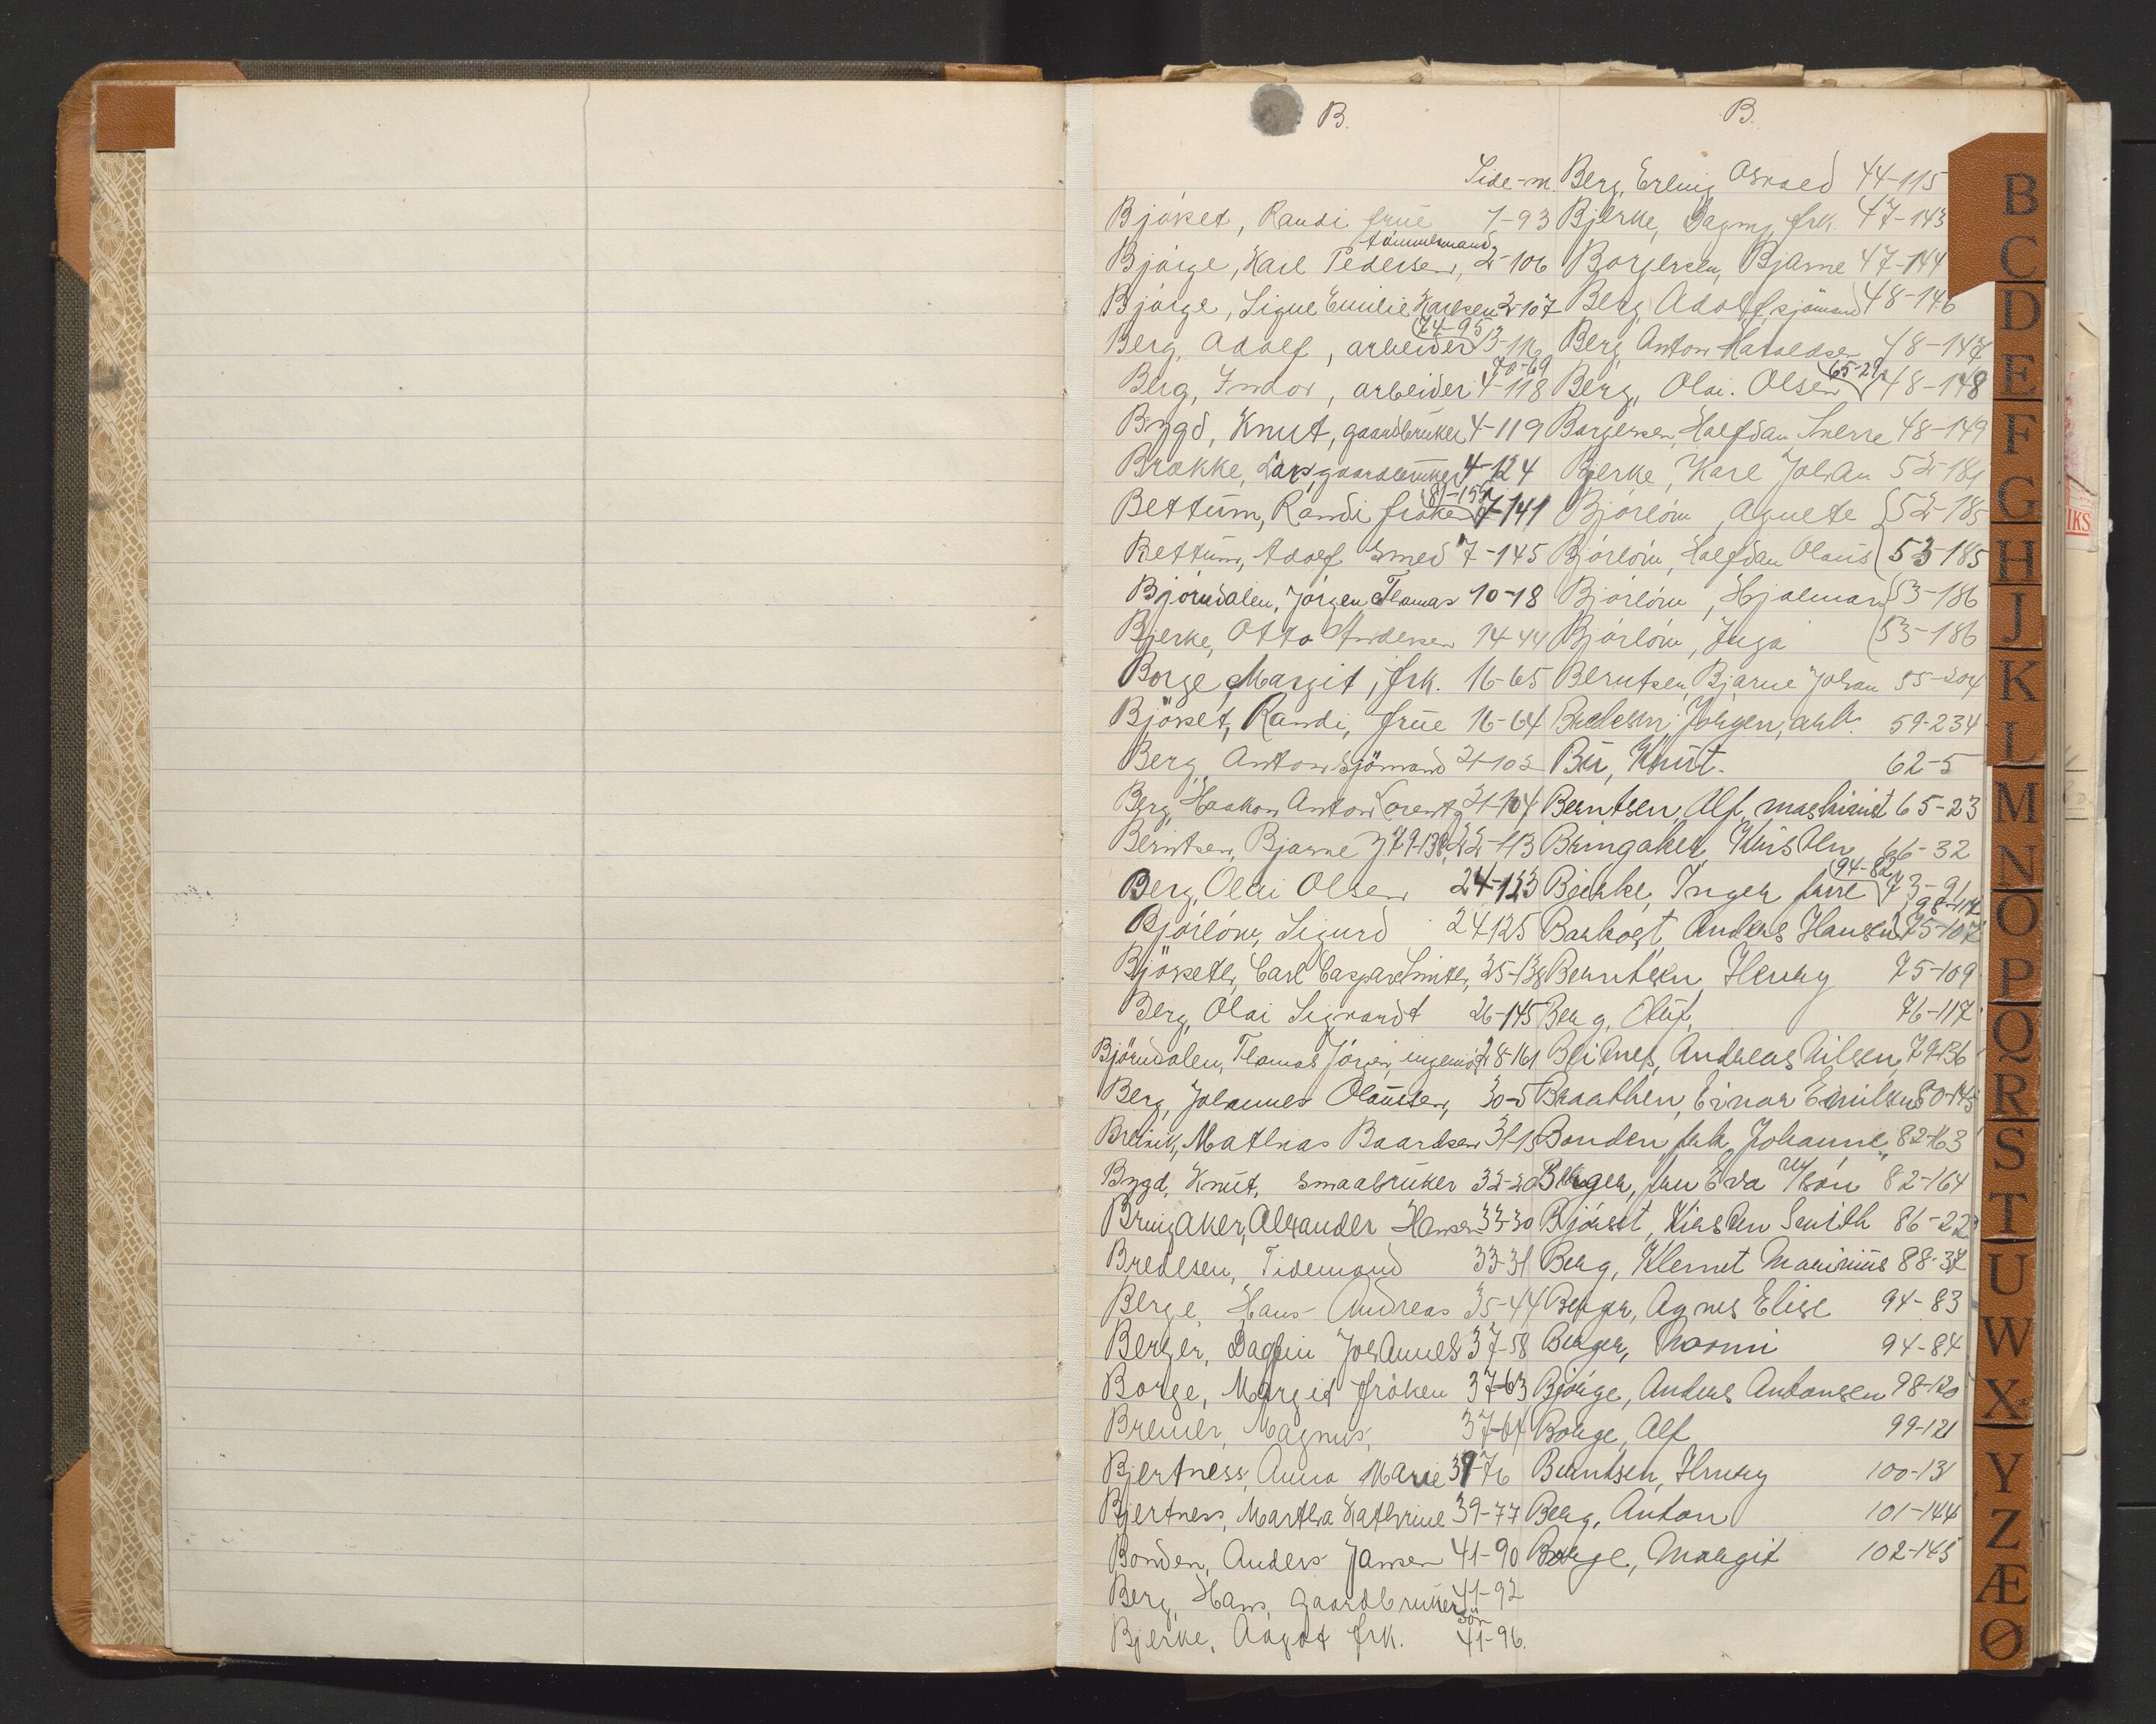 B.
Side-m.
Bjöset, Randi frue 1-93
tömmermand
Bjørge, Karl Pedersen, 2-106
Bjørge, Signe Emilie Karlsen 2-107
74-95
Berg, Adolf, arbeider 3-116
70-69
Berg, Indor, arbeider 4-118
Bygd, Knut, gaardbruker 4-119
Brække, Lars, gaardbruker 4-124
81-155
Bettum, Randi frøken 7-141
Bettum, Adolf Smed 7-145
Björndalen, Jörgen Thomas 10-18
Bjerke, Otto Andersen 14-44
Borge, Margit, frk. 16-65
Bjöset, Randi, frue 16-64
Berg, Anton sjömand 21-102
Berg, Haakon Anton Lorentz 21-104
Berntsen, Bjarne J 79-138, 22-113
Berg, Olai Olsen 24-123
Bjórlów, Sigurd 24125
Bjöseth, Carl Caspar Smith, 25-138
Berg, Olai Sigvardt 26-145
Björndalen, Thomas Jörgen, ingeniör 28-161
Berg, Johannes Olaussen, 30-5
Breivik, Mathias Baardsen 31-15
Bygd, Knut, smaabruker 32-20
Bringaker, Alexander Hansen 33-30
Bredesen, Tidemand 33-31
Berge, Hans Andreas 35-44
Berger, Dagfin Johannes 37-58
Borge, Margit fröken 37-63
Bremer, Magnus, 37-64
Bjertness, Anna Marie 39-76
Bjertness, Martha Kathrine 39-77
Bonden, Anders Jansen 41-90
Berg, Hans, gaardbruker 41-92
sön
Bjerke, Aagot frk. 41-96.
B.
Berg, Erling Osvald 44-115
Bjerke, Dagny frk. 47-143
Borgersen, Bjarne 47-144
Berg, Adolf, sjömand 48-146
Berg, Anton Haraldsen 48-147
65-29
Berg, Olai. Olsen 48-148
Borgersen, Halfdan Sverre 48-149
Bjerke, Karl Johan 52-181
Bjórlów, Agnete 52-185
Bjórlów, Halfdan Olaus 53-185
Bjórlów, Hjalmar 53-186
Bjórlów, Inga 53-186
Berntsen, Bjarne Johan 55-204
Bredesen, Jörgen, arb. 59-234
Bu, Knut. 62-5
Berntsen, Alf. maskinist 65-23
Bringaker, Kristian 66-32
94-82
Bjerke, Inger frue 73-91
98-112
Barkost, Anders Hansen 75-107
Berntsen, Henry 75-109
Berg, Oluf, 76-117
Breines, Andreas Nilsen, 79-136
Braathen, Einar Emilsen 80-145
Bonden, frk. Johanne, 82-163
Berger, fru Eva 82-164
Bjöset, Kirsten Smith 86-22
Berg, Klemet Marinius 88-37
Berger, Agnes Elise 94-83
Berger, Noomi 94-84
Bjørge, Anders Antonsen 98-120
Borge, Alf 99-121
Berntsen, Henry 100-131
Berg, Anton 101-144
Borge, Margit 102-145
B
C
D
E
F
G
H
J
K
L
M
N
O
P
Q
R
S
T
U
W
X
Y
Z
Æ
Ø
IKS